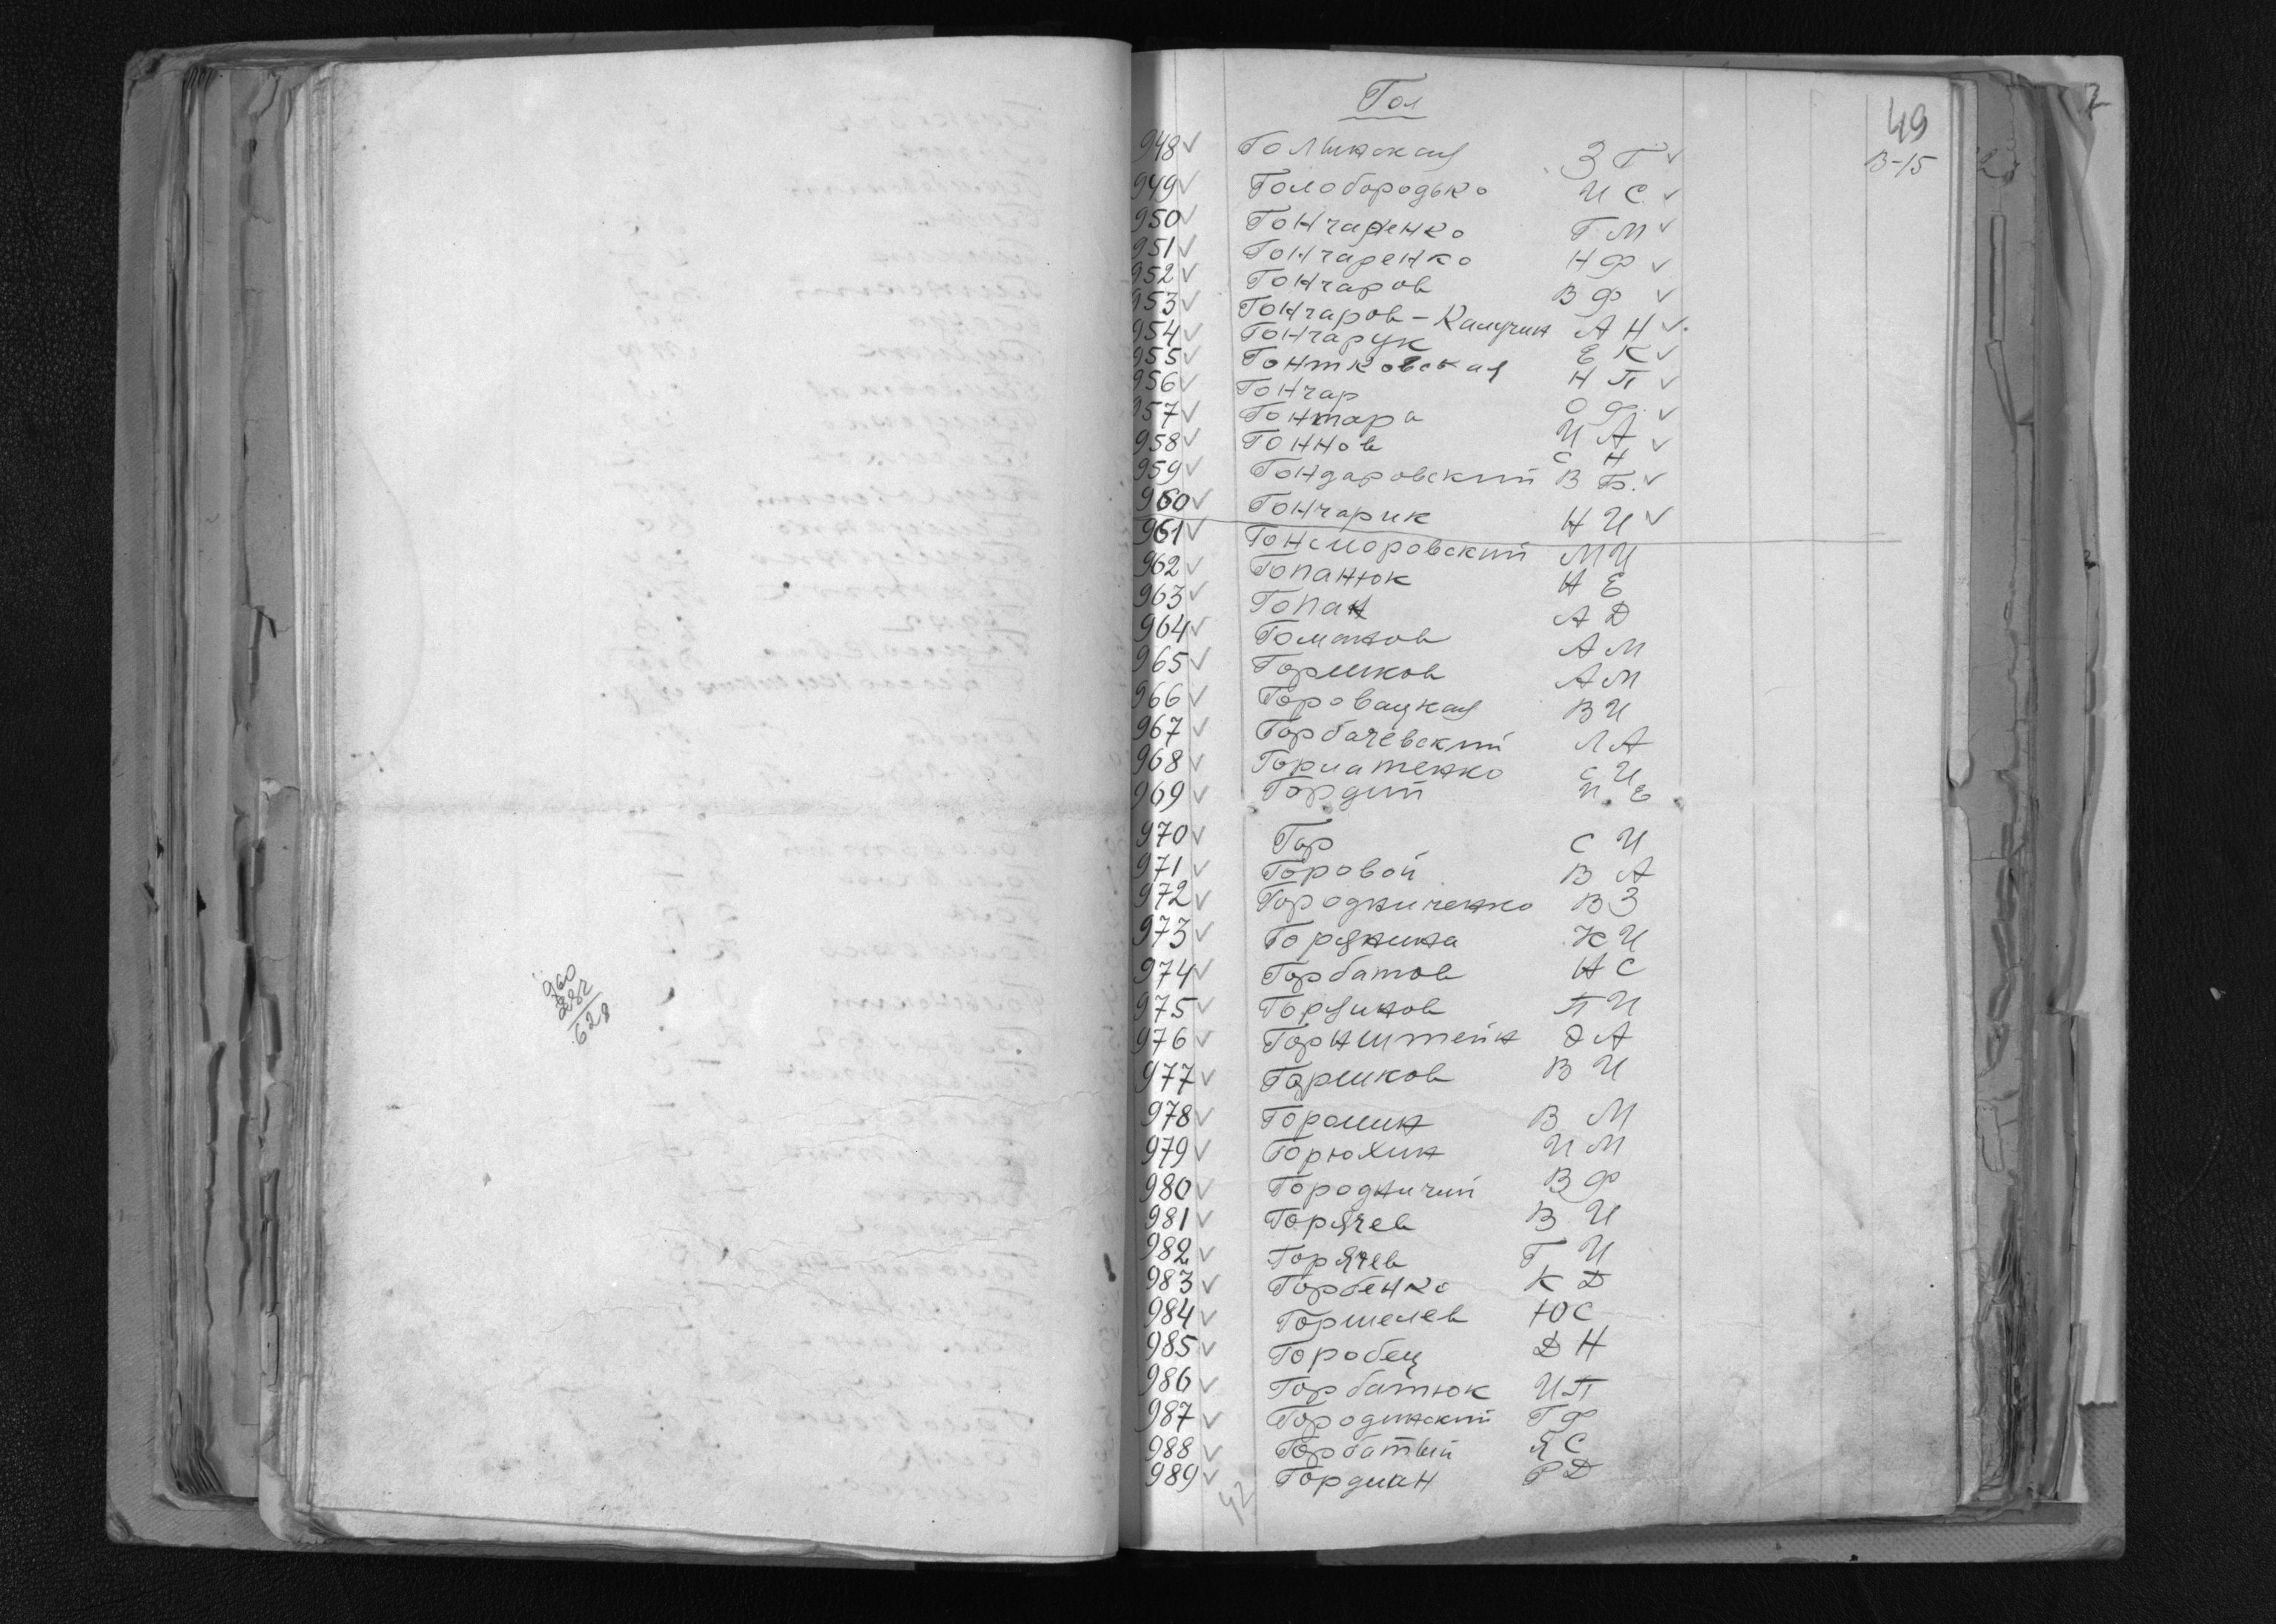 960
282
628
Гол
49
В-15
948 ✓ Голинская З Г ✓
949 ✓ Голобородько И С ✓
950 ✓ Гончаренко Г М ✓
951 ✓ Гончаренко Н Ф ✓
952 ✓ Гончаров В Ф ✓
953 ✓ Гончаров-Калугин А Н ✓
954 ✓ Гончарук Е К ✓
955 ✓ Гонтковская Н П ✓
956 ✓ Гончар О Ф ✓
957 ✓ Гонтара И А ✓
958 ✓ Гоннов С Н
959 ✓ Гондаровский В Б. ✓
960 ✓ Гончарик Н И ✓
961 ✓ М И
962 ✓ Гопанюк Н Е
963 ✓ Гопан А Д
964 ✓ Гоманов А М
965 ✓ Горшков А М
966 ✓ Горовацкая В И
967 ✓ Горбачевский Л А
968 ✓ Горматенко С И
969 ✓ Гордий И Е
970 ✓ Гор С И
971 ✓ Горовой В А
972 ✓ Городниченко В З
973 ✓ Горянина К И
974 ✓ Горбатов Н С
975 ✓ П И
976 ✓ Горнштейн Э А
977 ✓ Горшков В И
978 ✓ В М
979 ✓ Горюхин И М
980 ✓ Городничий В Ф
981 ✓ Горячев В И
982 ✓ Горячев Г И
983 ✓ Горбенко К Д
984 ✓ Горшелев Ю С
985 ✓ Горобец Д Н
986 ✓ Горбатюк И П
987 ✓ Городинский Г Ф
988 ✓ Горбатый Я С
989 ✓ Гордиан Р Д
42